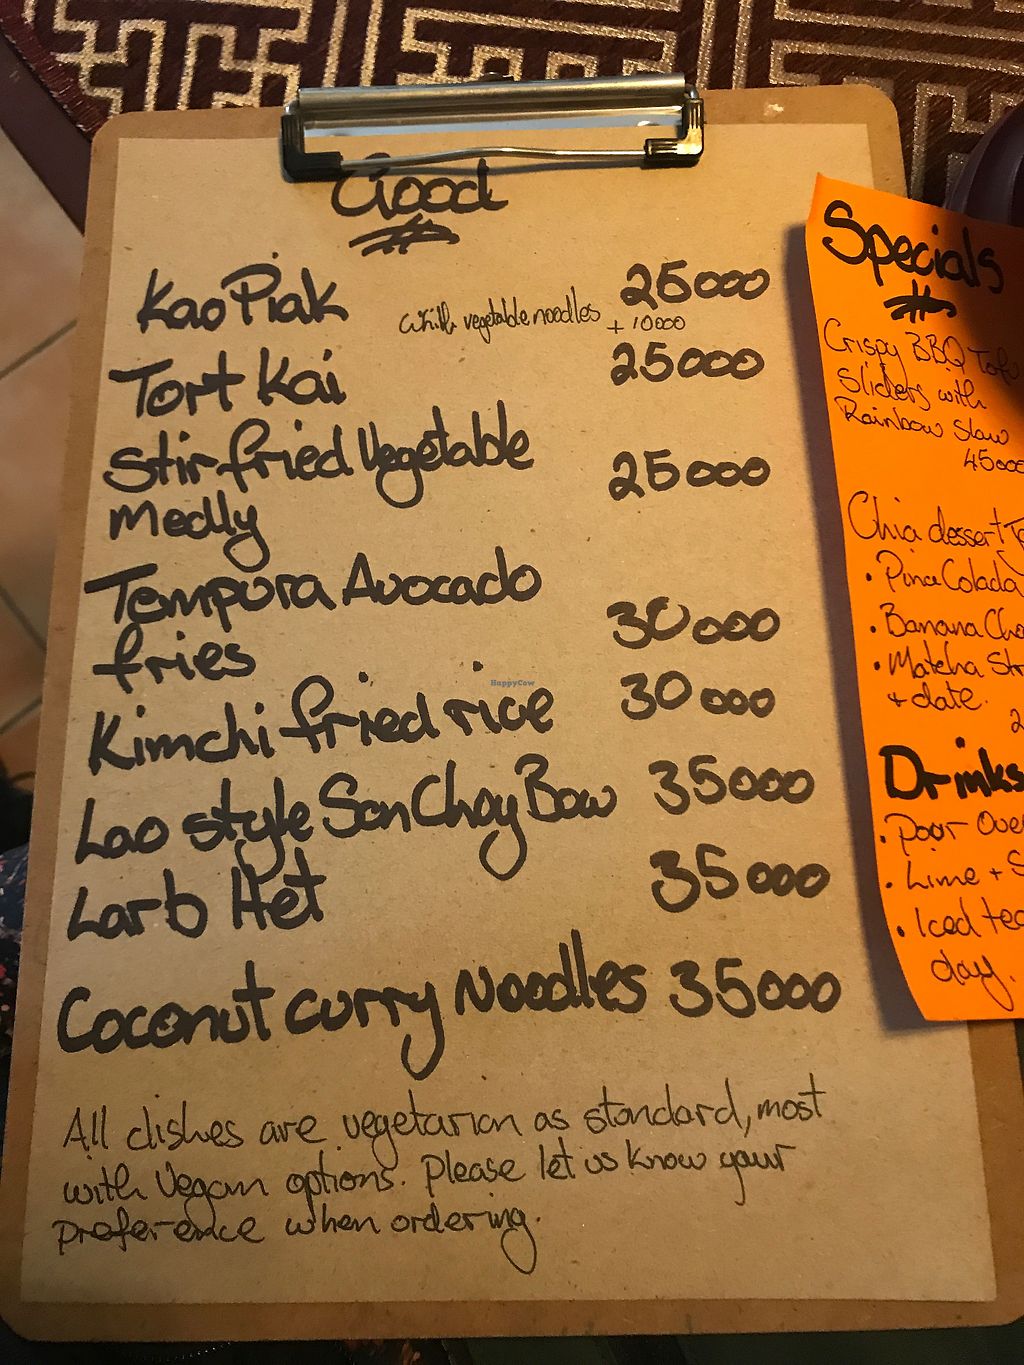 Good
Kao Piak 25000
With vegetable noodles + 10000
Tort Kai 25000
Stir fried Vegetable 25000
Medly
Tempura Avocado
fries 30000
Kimchi fried rice 30000
Lao style San Choy Bow 35000
Larb Het 35000
Coconut curry Noodles 35000
All dishes are vegetarian as standard, most
with Vegan options. Please let us know your
preference when ordering.
HappyCow
Specials
Crispy BBQ Tofu
Sliders with
Rainbow Slaw
45000
Chia dessert
• Pina Colada
• Banana Cho
• Matcha Str
+ date.
2
Drinks
• Poor Over
• Lime + S
• Iced tea
day.